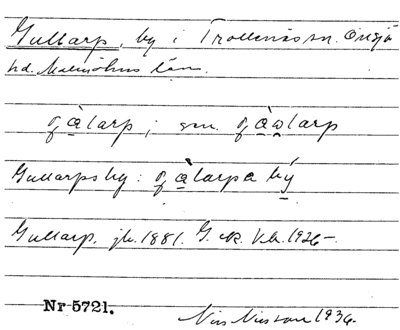 Gullarp, by i Trollenäs sn. Onsjö
hd. Malmöhus län.
gàlarp; sm. gàolarp
Gullarps by: gàlarpa bý
Gullarp. jb. 1881. G. K. 1926-
Nr 5721.
Nils Nilsson 1936.